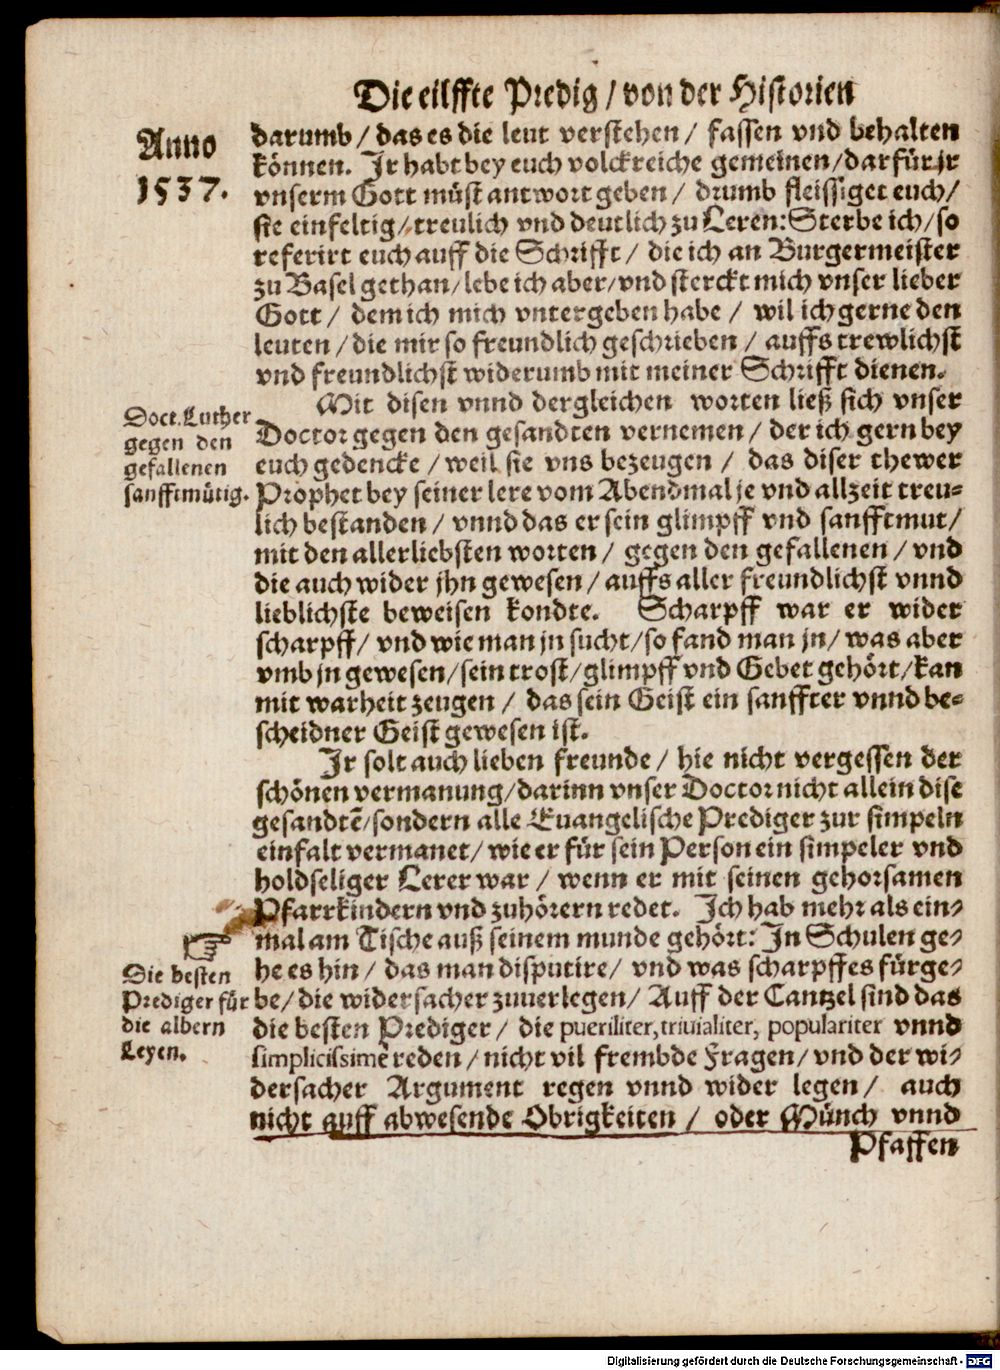 Die eilffte Predig / von der Historien
Anno
1537.
darumb / das es die leut verstehen / fassen vnd behalten
können. Jr habt bey euch volckreiche gemeinen / darfür jr
vnserm Gott müst antwort geben / drumb fleissiget euch /
sie einfeltig / treulich vnd deutlich zu Leren: Sterbe ich / so
referirt euch auff die Schrifft / die ich an Burgermeister
zu Basel gethan / lebe ich aber / vnd sterckt mich vnser lieber
Gott / dem ich mich vntergeben habe / wil ich gerne den
leuten / die mir so freundlich geschrieben / auffs trewlichst
vnd freundlichst widerumb mit meiner Schrifft dienen.
Doct. Luther
gegen den
gefallenen
sanfftmütig.
Mit disen vnnd dergleichen worten ließ sich vnser
Doctor gegen den gesandten vernemen / der ich gern bey
euch gedencke / weil sie vns bezeugen / das diser thewer
Prophet bey seiner lere vom Abendmal je vnd allzeit treu-
lich bestanden / vnnd das er sein glimpff vnd sanfftmut /
mit den allerliebsten worten / gegen den gefallenen / vnd
die auch wider jhn gewesen / auffs aller freundlichst vnnd
lieblichste beweisen kondte. Scharpff war er wider
scharpff / vnd wie man jn sucht / so fand man jn / was aber
vmb jn gewesen / sein trost / glimpff vnd Gebet gehört / kan
mit warheit zeugen / das sein Geist ein sanffter vnnd be-
scheidner Geist gewesen ist.
Jr solt auch lieben freunde / hie nicht vergessen der
schönen vermanung / darinn vnser Doctor nicht allein dise
gesandtē / sondern alle Euangelische Prediger zur simpeln
einfalt vermanet / wie er für sein Person ein simpeler vnd
holdseliger Lerer war / wenn er mit seinen gehorsamen
Pfarrkindern vnd zuhörern redet. Jch hab mehr als ein-
mal am Tische auß seinem munde gehört: Jn Schulen ge-
he es hin / das man disputire / vnd was scharpffes fürge-
be / die widersacher zuuerlegen / Auff der Cantzel sind das
die besten Prediger / die pueriliter, triuialiter, populariter vnnd
simplicissimè reden / nicht vil frembde Fragen / vnd der wi-
dersacher Argument regen vnnd wider legen / auch
nicht auff abwesende Obrigkeiten / oder Münch vnnd
☞
Die besten
Prediger für
die albern
Leyen.
Pfaffen
Digitalisierung gefördert durch die Deutsche Forschungsgemeinschaft - DFG